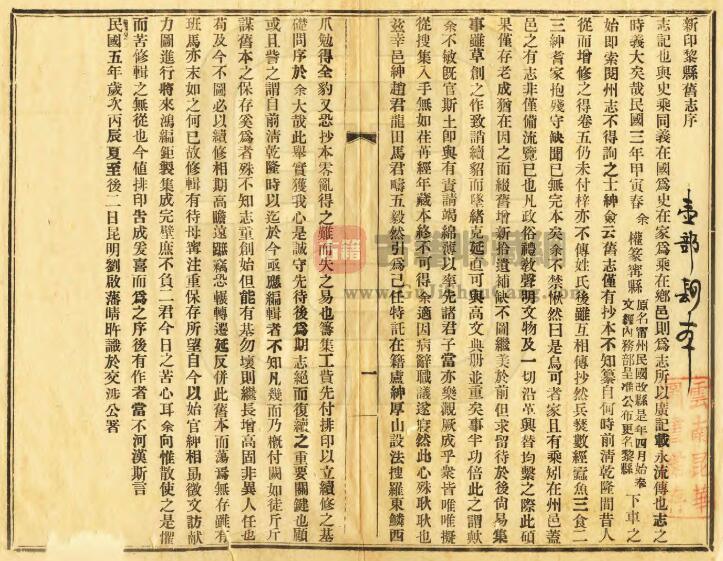 新印黎縣舊志序
志記也與史乘同義在國爲史在家爲乘在鄉邑則爲志所以廣記載永流傳也志之
時義大矣哉民國三年甲寅春余權篆甯縣原名甯州民國改縣是年四月始奉文經內務部呈准公布更名黎縣下車之
始即索閱州志不得詢之士紳僉云舊志僅有抄本不知纂自何時前清乾隆間昔人
從而增修之得卷五仍未付梓亦不傳姓氏後雖互相傳抄然兵燹數經蠹魚三食二
三紳耆家抱殘守缺聞已無完本矣余不禁愀然曰是烏可者家且有乘矧在州邑蓋
邑之有志非僅備流覽已也凡政俗禮敎聲明文物及一切沿革興替均繫之際此碩
果僅存老成猶在因之而綴舊增新拾遺補缺不圖繼美於前但求留待於後尙易集
事雖草創之作致誚續貂而墜緒克延直可與高文典册並重矣事半功倍此之謂歟
余不敏旣官斯土即與有責請竭綿薄以先諸君子當亦樂觀厥成乎衆皆唯唯擬
從搜集入手無如荏苒經年藏本終不可得余適因病辭職議遂寢然此心殊耿耿也
茲幸邑紳趙君龍田馬君疇五毅然引爲己任特託在籍盧紳厚山設法搜羅東鱗西
爪勉得全豹又恐抄本零亂得之難而失之易也籌集工費先付排印以立續修之基
礎問序於余大哉此舉實獲我心是誠守先待後爲期志絕而復續之重要關鍵也顧
或且訾之謂自前清乾隆時以迄於今亟應編輯者不知凡幾而乃槪付闕如徒斤斤
謀舊本之保存奚爲者殊不知志重創始但能有基勿壞則繼長增高固非異人任也
苟及今不圖必以續修相期高瞻遠矚竊恐輾轉遷延反併此舊本而蕩焉無存雖有
班馬亦末如之何已故修輯有待毋寗注重保存所望自今以始官紳相勗徵文訪獻
力圖進行將來鴻編鉅製集成完璧庶不負二君今日之苦心耳余向惟散佚之是懼
而苦修輯之無從也今値排印吿成爰喜而爲之序後有作者當不河漢斯言
民國五年歲次丙辰夏至後二日昆明劉啟藩晴昨識於交涉公署
古籍